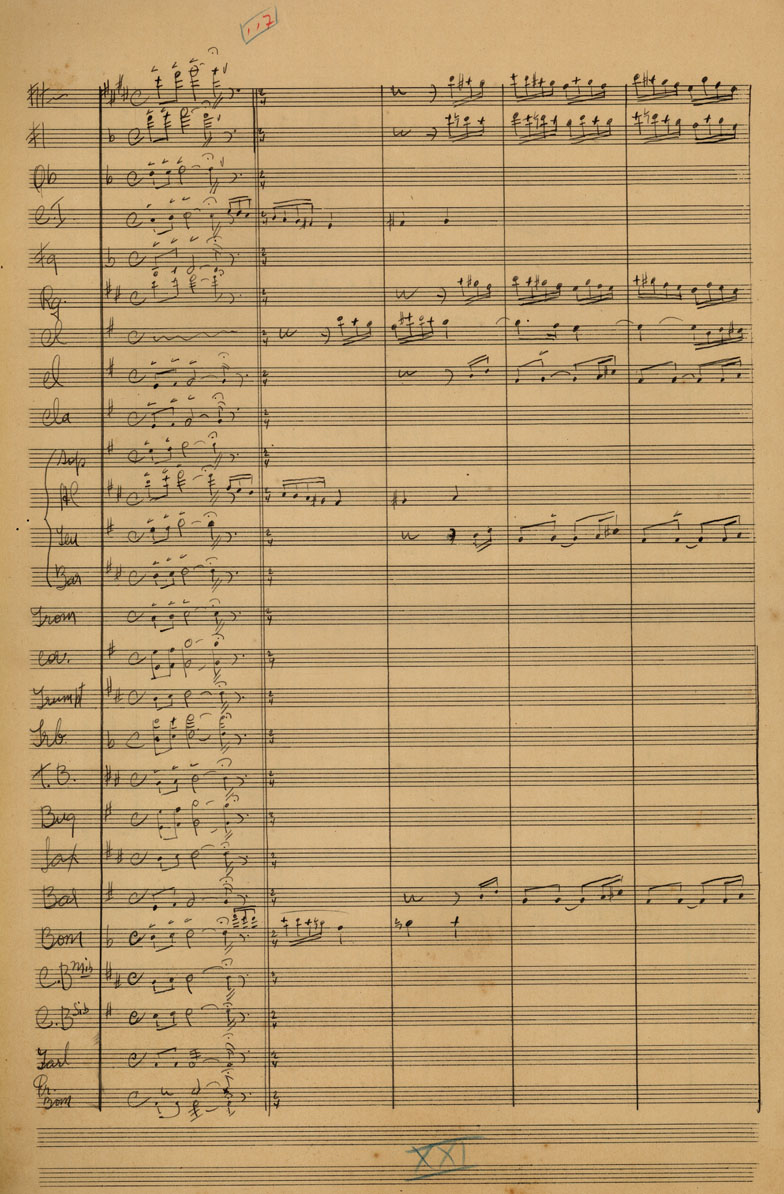 117
Fl
Ob
C.I.
Fg
Rq.
Cl
Cl
Cla
Sop
Al
Ten
Bar
Trom
Cor.
Trumpt
Trb
T.B.
Bug
Sax
Bar
Bom
C.B Mib
C.B Sib
Gr.
Bom
XXI